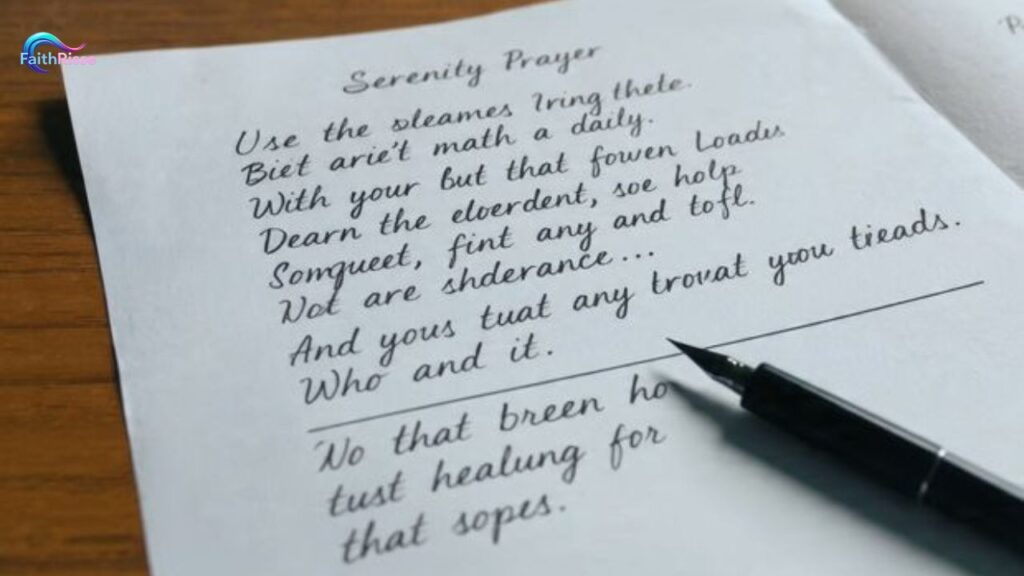 FaithPisse
Serenity Prayer
Use the oleames Iring thele.
Biet arie't math a daily.
With your but that fowen Loades
Dearn the eloerdent, soe holp
Somqueet, fint any and tofl.
Not are shderance...
And yous tuat any trovat yoou tieads.
Who and it.
No that breen ho
tust healung for
that sopes.